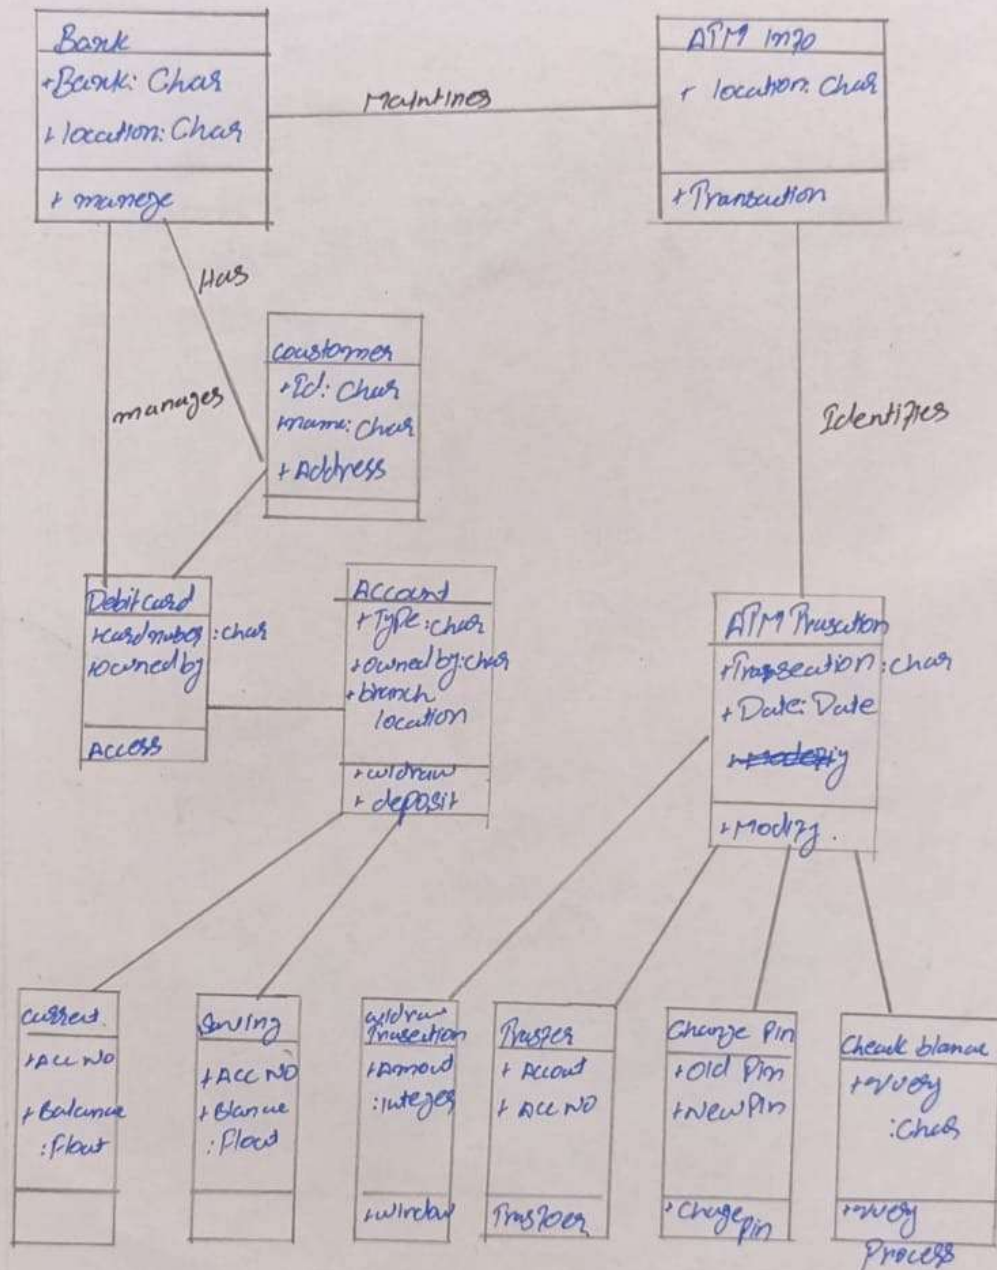 Bank
+Bank: Char
+ location: Char
+ manege
ATM Info
+ location: Char
+Transaction
Maintines
Has
manages
Identifies
coustomer
+Id: Char
+name: Char
+ Address
Debit card
+cardnuber: char
+ownedby
Access
Account
+Type: char
+ownedby: char
+branch
location
+ widraw
+ deposit
ATM Trusation
+Transeation: char
+ Date: Date
+ Modify.
current.
+Acc NO
+Balanue
: Float
Saving
+ACC NO
+Blanue
: Float
widraw
Trasection
+Amout
: integer
Trasfer
+ Accout
+ Acc NO
Trasfoer
Change Pin
+Old Pin
+New Pin
+Chage
Pin
Cheack blanue
: Char
Process